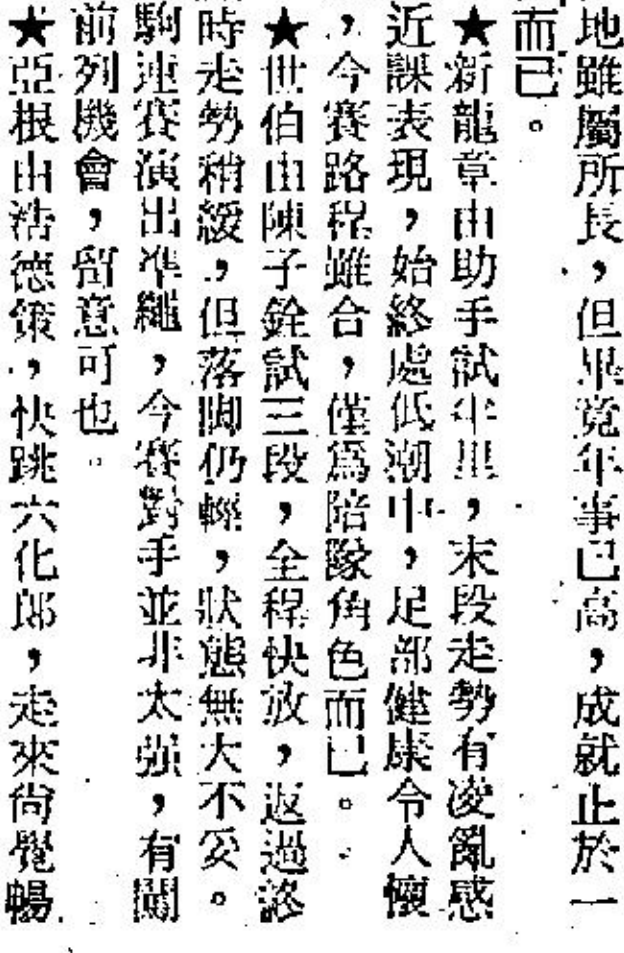 地雖屬所長，但畢竟年事已高，成就止於一
而已。
★新龍章由助手試半里，末段走勢有凌亂感
近課表現，始終處低潮中，足部健康令人懷
，今賽路程雖合，僅為陪隊角色而已。
★世伯由陳子銓試三段，全程快放，返過終
時走勢稍緩，但落脚仍輕，狀態無大不妥。
駒連賽演出準繩，今賽對手並非太強，有闖
前列機會，留意可也。
★亞根由浩德策，快跳六化郎，走來尚覺暢